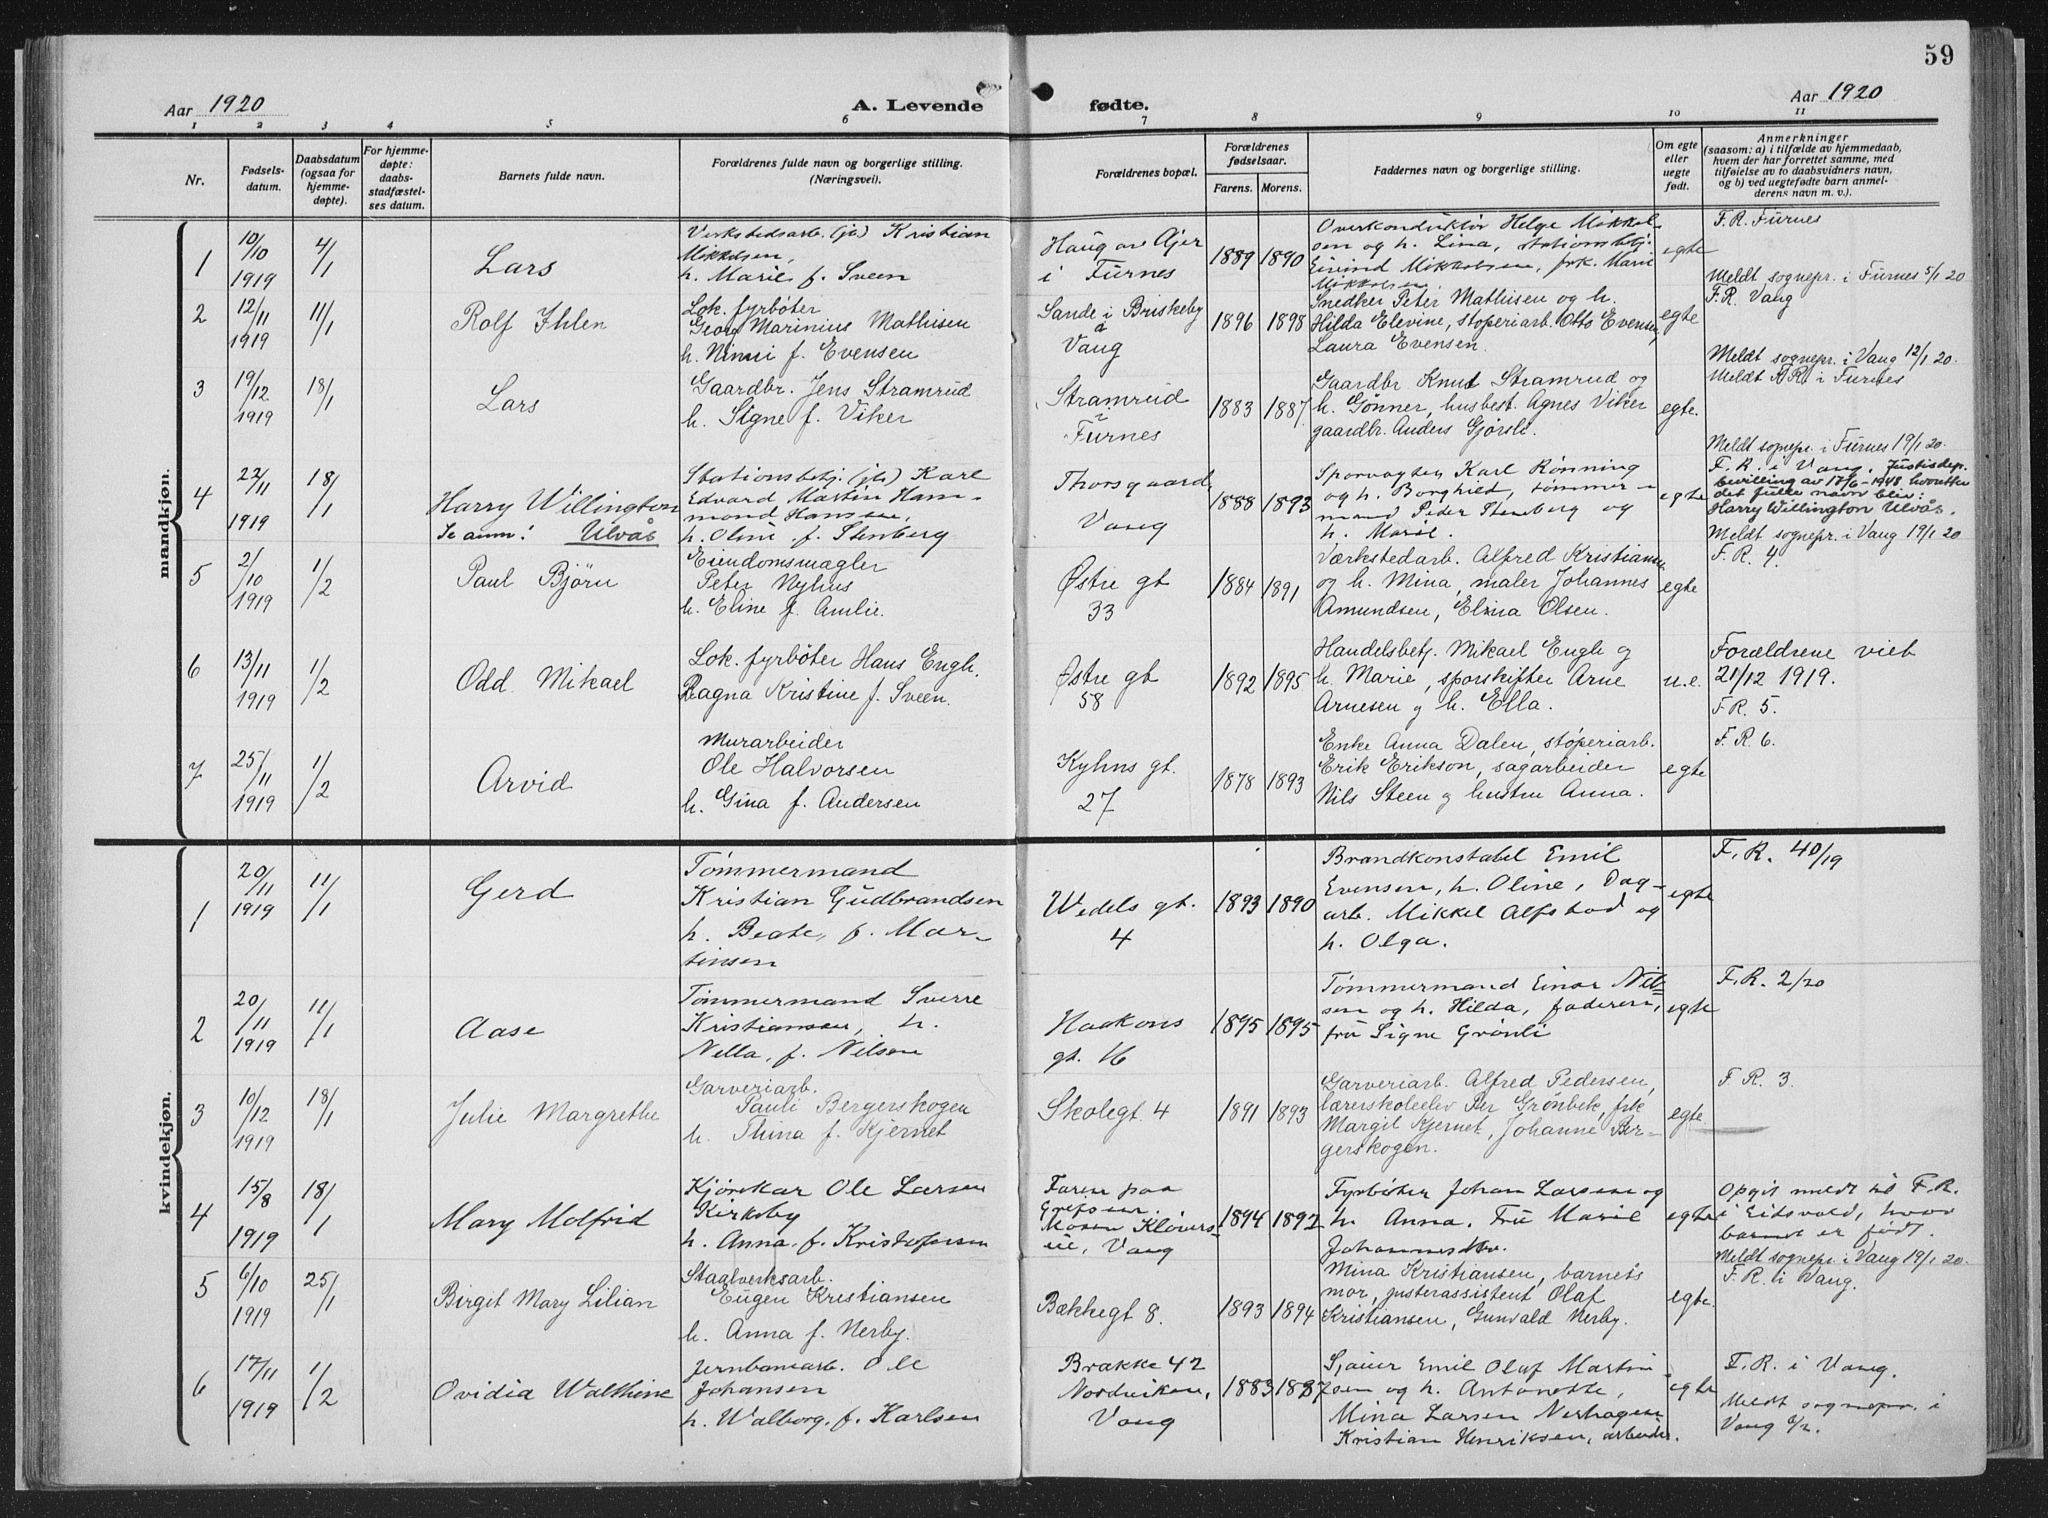 59
Aar 1920
A. Levende fødte.
Aar 1920
1 2 3 4 5 6 7 8 9 10 11
Nr.
Fødsels-
datum.
Daabsdatum
(ogsaa for
hjemme-
døpte).
For hjemme-
døpte:
daabs-
stadfæstel-
ses datum.
Barnets fulde navn.
Forældrenes fulde navn og borgerlige stilling.
(Næringsvei).
Forældrenes bopæl.
Forældrenes
fødselsaar.
Farens. Morens.
Faddernes navn og borgerlige stilling.
Om egte
eller
uegte
født.
Anmerkninger
(saasom: a) i tilfælde av hjemmedaab,
hvem der har forrettet samme, med
tilføielse av to daabsvidners navn,
og b) ved uegtefødte barn anmel-
derens navn m. v.).
mandkjøn.
1
10/10
1919
4/1
Lars
Verkstedsarb. (jb) Kristian
Mikkelsen,
h. Marie f. Sveen
Haug av Ajer
i Furnes
1889 1890
Overkonduktör Helge Mikkel-
sen og h. Lina, stationsbetj.
Eivind Mikkelsen, frk. Marie
Mikkelsen.
egte
F. R. Furnes
Meldt sognepr. i Furnes 5/1 20
2
12/11
1919
11/1
Rolf Ihlen
Lok. fyrböter
Georg Marinius Mathisen
h. Ninni f. Evensen
Sande i Briskeby
Vang
1896 1898
Snedker Peter Mathisen og h.
Hilda Elevine, stöperiarb. Otto Evensen,
Laura Evensen.
egte
F. R. Vang
Meldt sognepr. i Vang 12/1 20.
3
19/12
1919
18/1
Lars
Gaardbr. Jens Stramrud
h. Signe f. Viker
Stramrud
i
Furnes
1883 1887
Gaardbr Knut Stramrud og
h. Gønner, husbest. Agnes Viker
gaardbr. Anders Gjørsli.
egte.
Meldt F.R. i Furnes
Meldt sognepr. i Furnes 19/1 20.
4
22/11
1919
18/1
Harry Willington
Se anm: Ulvås
Stationsbetj. (jb) Karl
Edvard Martin Ham-
mond Hansen,
h. Oline f. Stenberg
Thorsgaard,
Vang
1888 1893
Sporvogter Karl Rønning
og h. Borghild, tømmer-
mand Peder Stenberg og
h. Marie.
egte
F. R. i Vang. Justisdep.
bevilling av 18/6-1948 hvoretter
det fulle navn blir:
Harry Willington Ulvås.
Meldt sognepr. i Vang 19/1 20
5
2/10
1919
1/2
Paul Björn
Eiendomsmægler
Peter Nyhus
h. Eline f. Amlie.
Østre gt
33
1884 1891
Værkstedarb. Alfred Kristiansen
og h. Mina, maler Johannes
Amundsen, Elina Olsen.
egte
F. R. 4.
6
13/11
1919
1/2
Odd Mikael
Lok. fyrböter Hans Engh.
Ragna Kristine f. Sveen.
Østre gt
58
1892 1895
Handelsbetj. Mikael Engh og
h. Marie, sporskifter Arne
Arnesen og h. Ella.
u.e.
Forældrene viet
21/12 1919.
F. R. 5.
7
25/11
1919
1/2
Arvid
Murarbeider
Ole Halvorsen
h. Gina f. Andersen
Kyhns gt.
27
1878 1893
Enke Anna Dalen, stöperiarb.
Erik Erikson, sagarbeider
Nils Steen og hustru Anna.
egte
F. R. 6.
kvindekjøn.
1
20/11
1919
11/1
Gerd
Tømmermand
Kristian Gudbrandsen
h. Beate, f. Mar-
tinsen
Wedels gt.
4
1893 1890
Brandkonstabel Emil
Evensen, h. Oline, Dag-
arb. Mikkel Alfstad og
h. Olga.
egte
F. R. 40/19
2
20/11
1919
11/1
Aase
Tømmermand Sverre
Kristiansen, h.
Nella, f. Nilsen
Haakons
gt. 16
1895 1895
Tømmermand Einar Nil-
sen og h. Hilda, faderen,
fru Signe Grönli
egte
F. R. 2/20
3
10/12
1919
18/1
Julie Margrethe
Garveriarb.
Pauli Bergerskogen
h. Thina f. Kjernet
Skolegt. 4
1891 1893
Garveriarb. Alfred Pedersen,
lærerskoleelev Per Grønbek, frk
Margit Kjernet, Johanne Ber-
gerskogen.
egte
F. R. 3.
4
15/8
1919
18/1
Mary Molfrid
Kjørekar Ole Larsen
Kirkeby
h. Anna f. Kristofersen
Faren paa
Grefsen.
Moren Kløvers-
Vang
1894 1892
Fyrbøter Johan Larsen og
h. Anna. Fru Marie
egte
Opgit meldt til F. R.
i Eidsvold, hvor
barnet er født.
Meldt sognepr. i Vang 19/1 20.
5
6/10
1919
25/1
Birgit Mary Lilian
Staalverksarb.
Eugen Kristiansen
h. Anna f. Nerby.
Bækkegt 8.
1893 1894
Mina Kristiansen, barnets
mor, justerassistent Olaf
Kristiansen, Gunvald Nerby.
egte.
F. R. i Vang.
6
17/11
1919
1/2
Ovidia Walthine
Jernbanearb. Ole
Johansen
h. Walborg f. Karlsen
Brakke 42
Nordviken,
Vang
1883 1887
Sjauer Emil Olaf Martin-
sen og h. Antonette,
Mina Larsen Nerhagen
Kristian Henriksen, arbeider.
egte
F. R. i Vang.
Meldt sognepr. i
Vang